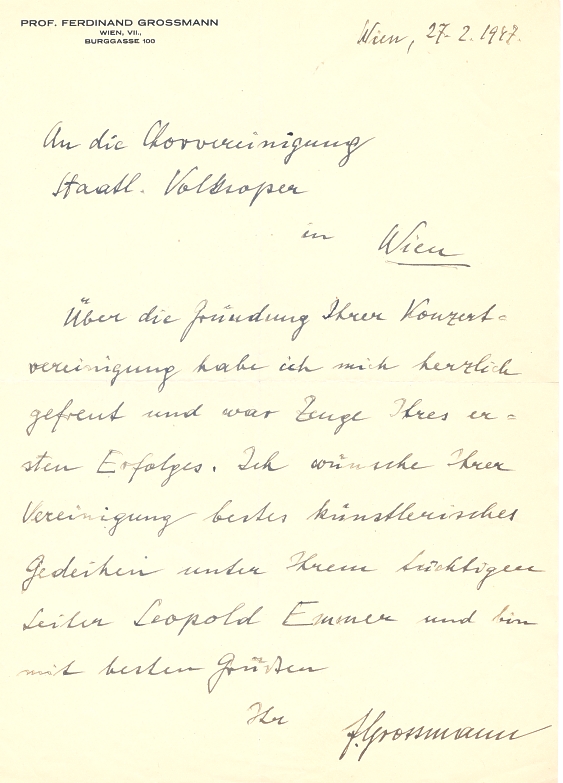 PROF. FERDINAND GROSSMANN
WIEN, VII.,
BURGGASSE 100
Wien, 27. 2. 1947.
An die Chorvereinigung
Staatl. Volksoper
in Wien
Über die Gründung Ihrer Konzert=
vereinigung habe ich mich herzlich
gefreut und war Zeuge Ihres er=
sten Erfolges. Ich wünsche Ihrer
Vereinigung bestes künstlerisches
Gedeihen unter Ihrem tüchtigen
Leiter Leopold Emmer und bin
mit besten Grüßen
Ihr F. Grossmann